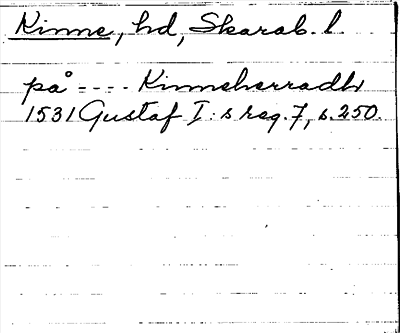 Kinne, hd, Skarab. l.
på ---- Kinneherradh
1531 Gustaf I:s reg. 7, s. 250.